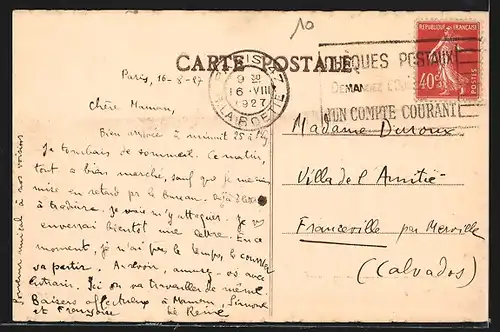 10
CARTE POSTALE
PARIS
9 30
16 VIII
1927
R. LA BOETIE
CHÈQUES POSTAUX
DEMANDEZ L'OUVERTURE
D'UN COMPTE COURANT
REPUBLIQUE FRANÇAISE
40c
POSTES
Paris, 16-8-27
Chère Maman,
Bien arrivée à minuit 25 à
Je tombais de sommeil. Ce matin,
tout a bien marché, sauf que je me suis
mise en retard par le bureau.
à traduire. Je vais m'y attaquer. Je
enverrai bientôt une lettre. En ce
moment, je n'ai pas le temps, le courrier
va partir. Au revoir, amuse- avec
entrain. Ici on va travailler de même
Baisers affectueux à Maman, Simone
et Françoise
Reine
amical à nos voisins
Madame Duroux
Villa de l'Amitié
Franceville par Merville
(Calvados)